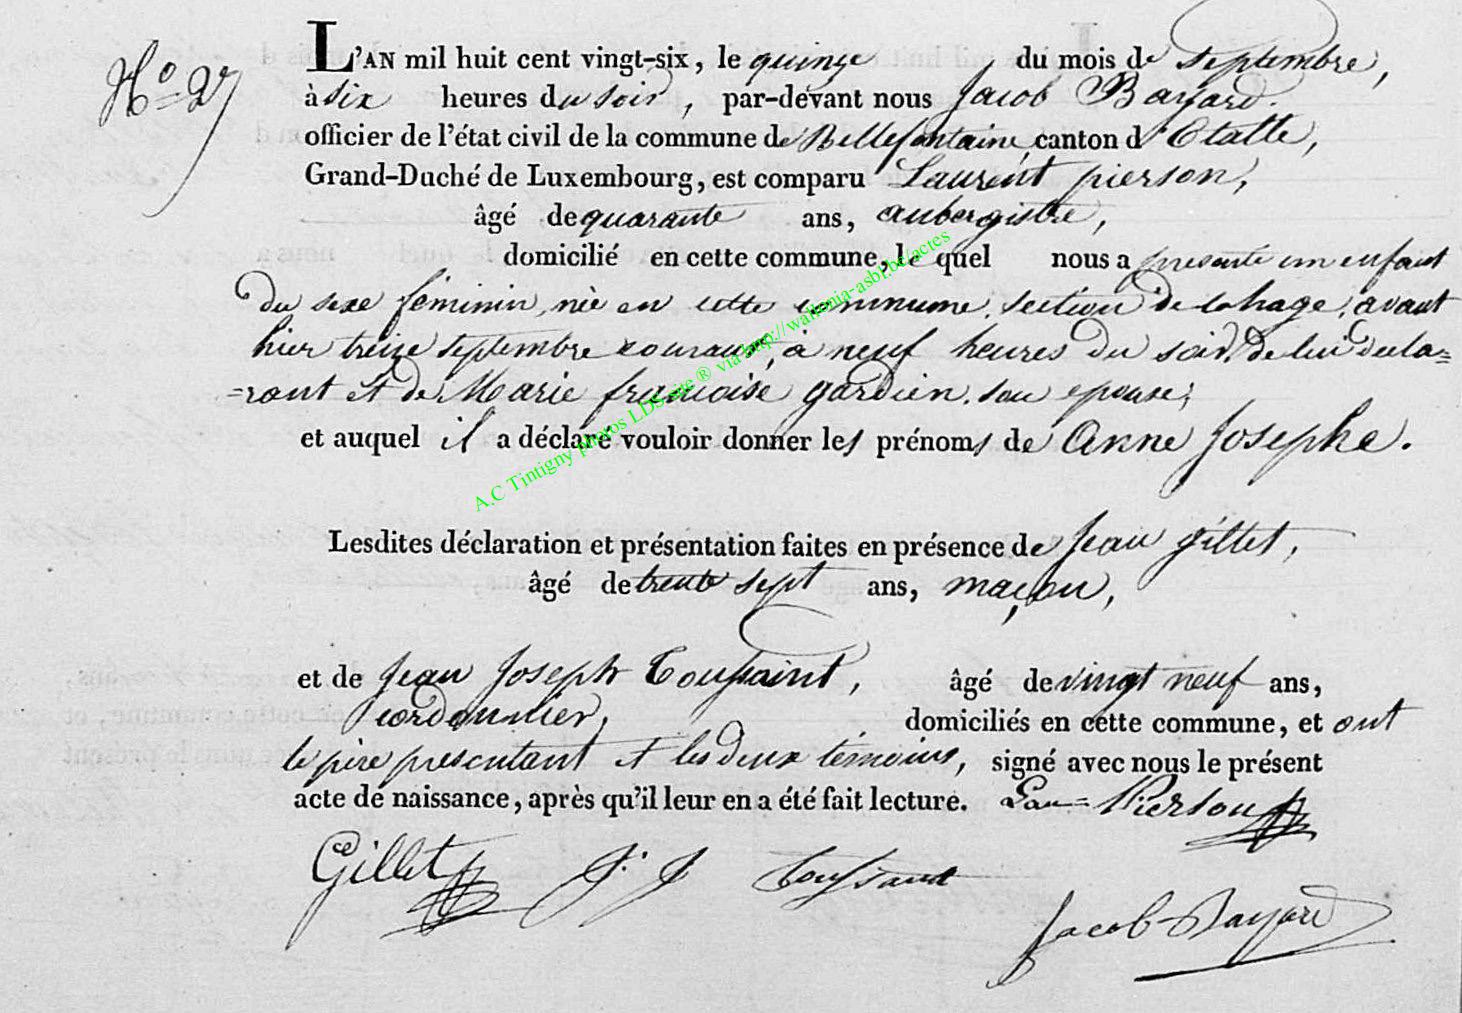 N.o 27
L'AN mil huit cent vingt-six, le quinze du mois de septembre,
à six heures du soir, par-devant nous Jacob Bayard.
officier de l'état civil de la commune de Bellefontaine, canton d'Etalle,
Grand-Duché de Luxembourg, est comparu Laurent pierson,
âgé de quarante ans, aubergistre,
domicilié en cette commune, le quel nous a presenté un enfant
du sexe féminin, née en cette commune, section de lahage, avant
hier treize septembre courant, à neuf heures du soir, de lui decla=
=rant et de Marie françoise gardien, son epouse;
et auquel il a déclaré vouloir donner les prénoms de Anne Josephe.
A.C Tintigny photos LDS site ® via http://wallonia-asbl.be/actes
Lesdites déclaration et présentation faites en présence de Jean gillet,
âgé de trente sept ans, maçon,
et de Jean Joseph Toussaint, âgé de vingt neuf ans,
cordonnier, domiciliés en cette commune, et ont
le père presentant et les deux témoins, signé avec nous le présent
acte de naissance, après qu'il leur en a été fait lecture. Lau= Pierson
Gillet J. J Toussaint
Jacob Bayard